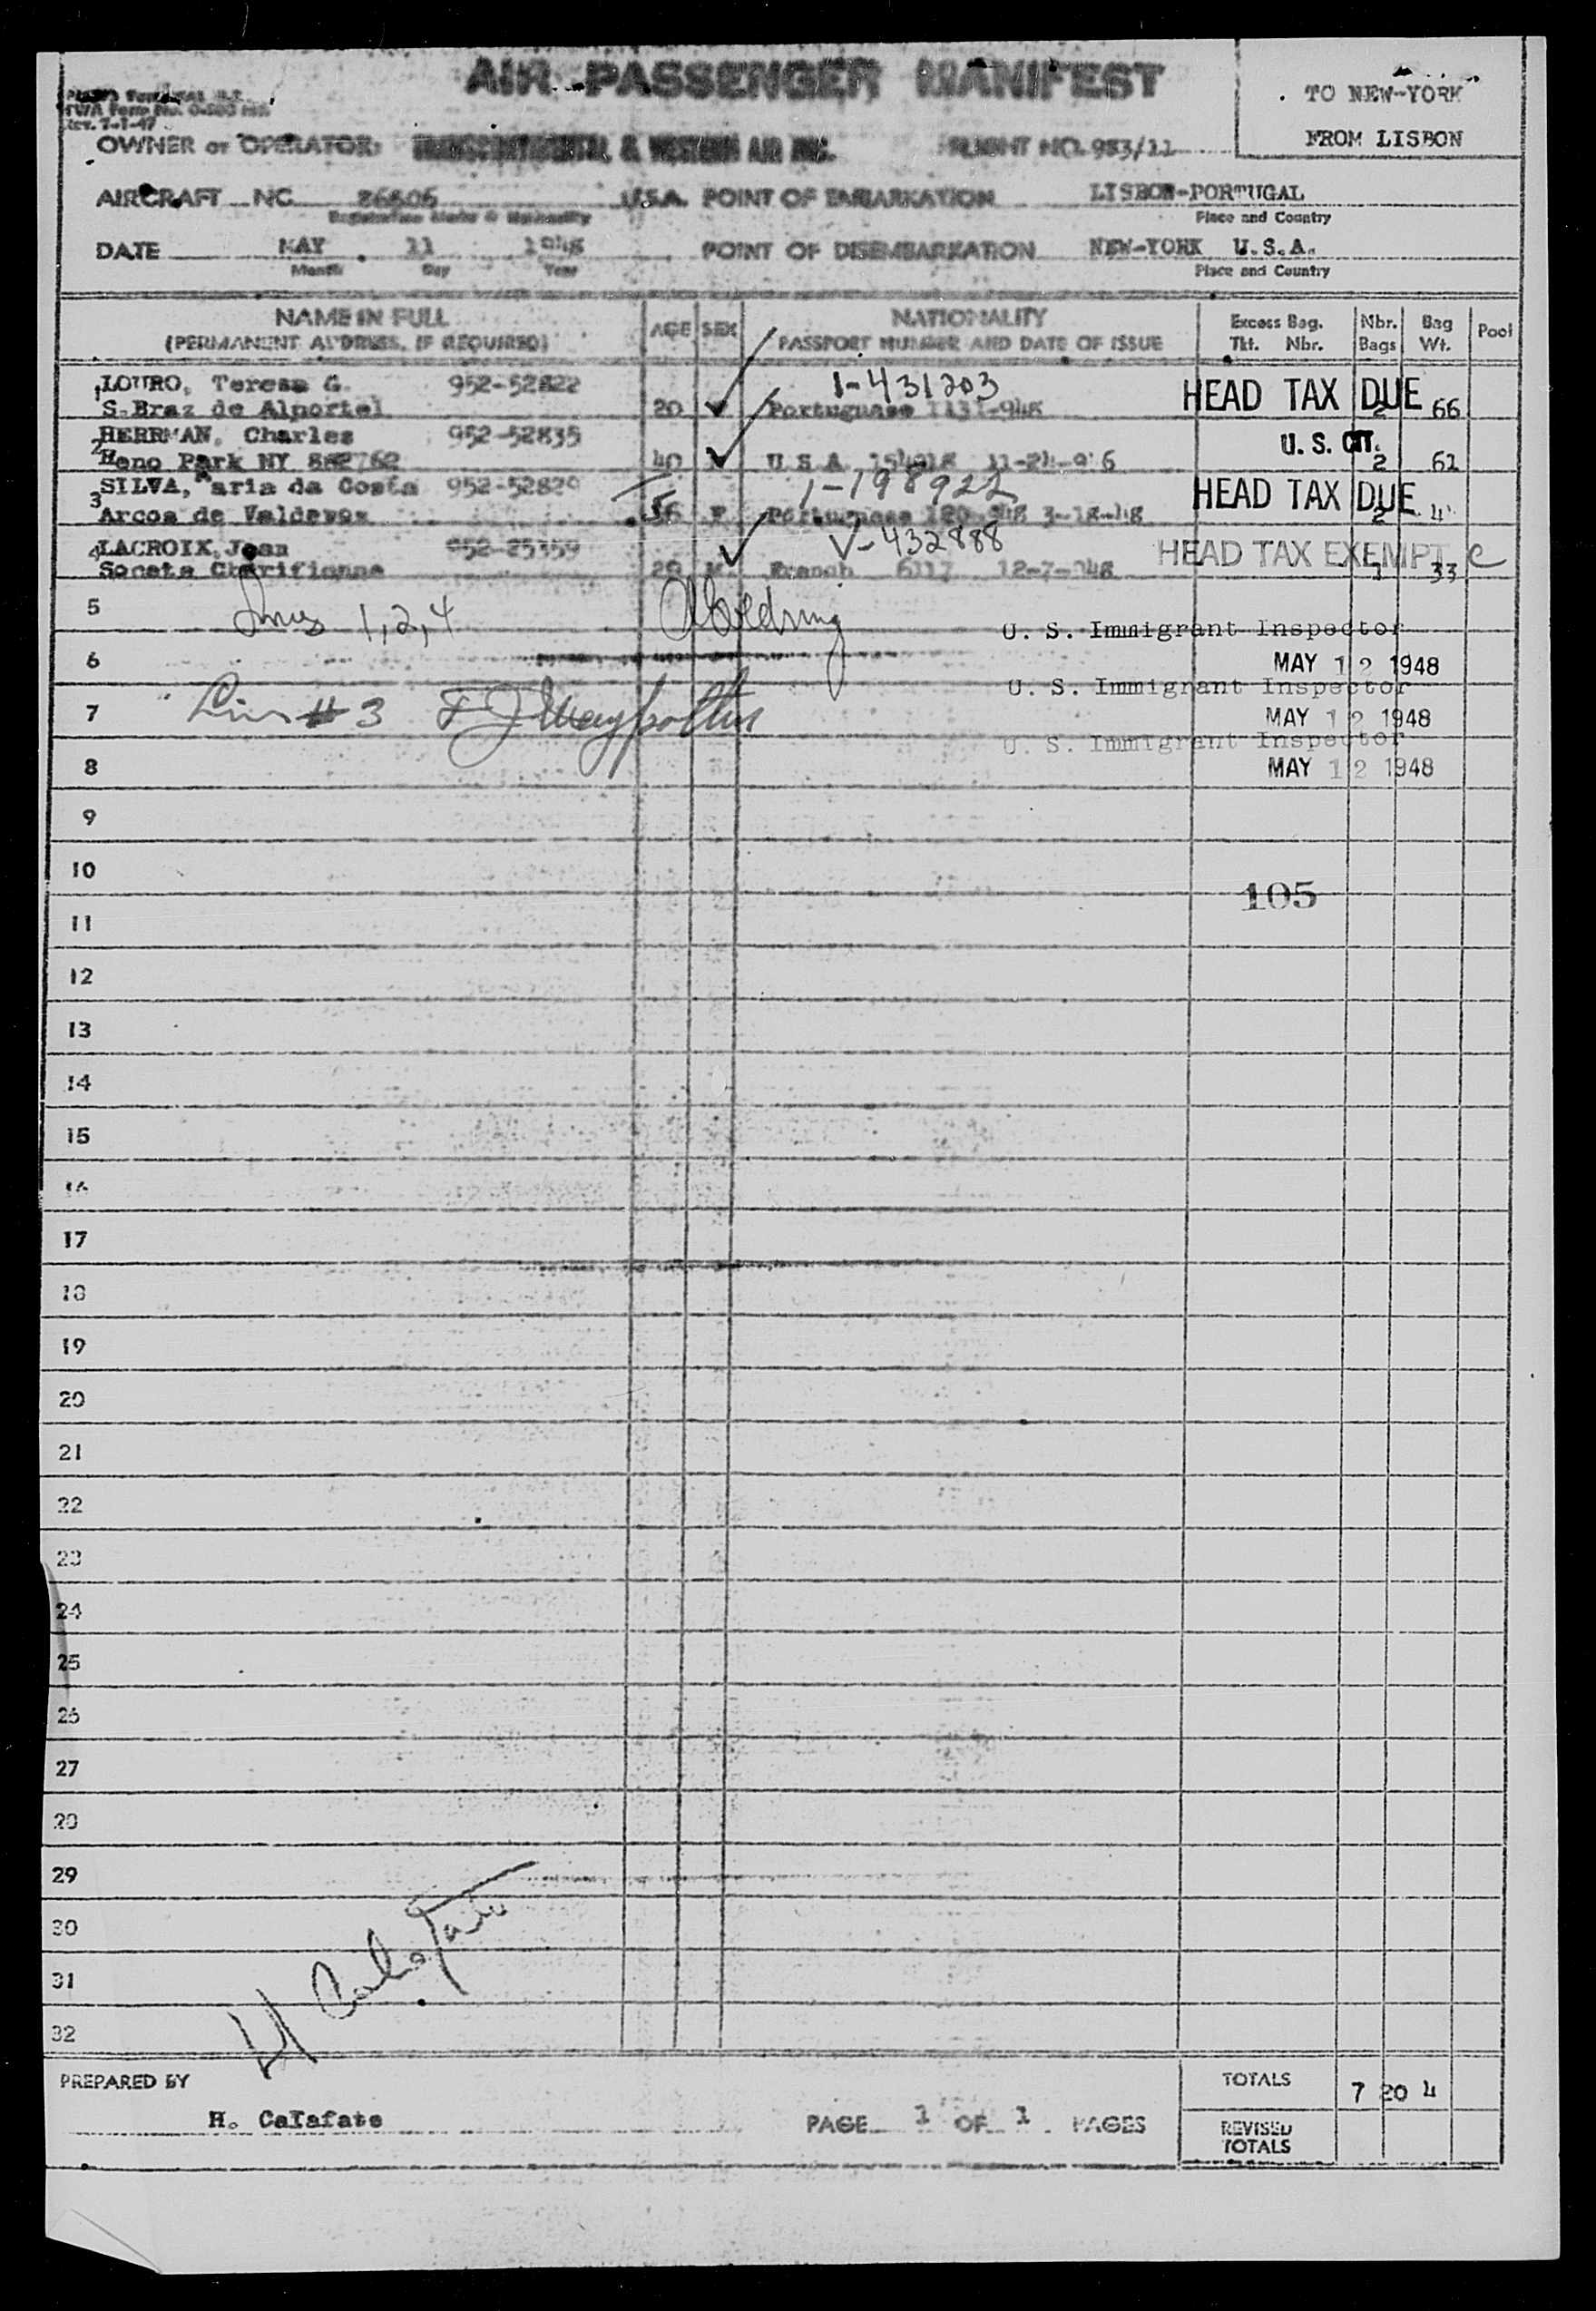 AIR PASSENGER MANIFEST
TWA Form No.
Rev. 7-1-47
TO NEW-YORK
FROM LISBON
OWNER or OPERATOR: TRANSCONTINENTAL & WESTERN AIR INC. FLIGHT NO. 953/11
AIRCRAFT NC 86506 U.S.A. POINT OF EMBARKATION LISBON-PORTUGAL
Registration Marks & Nationality Place and Country
DATE MAY 11 1948 POINT OF DISEMBARKATION NEW-YORK U.S.A.
Month Day Year Place and Country
NAME IN FULL AGE SEX NATIONALITY Excess Bag. Nbr. Bag Pool
(PERMANENT ADDRESS, IF REQUIRED) PASSPORT NUMBER AND DATE OF ISSUE Tkt. Nbr. Bags Wt.
1 LOURO, Teresa G. 952-52822 1-431203 HEAD TAX DUE
S.Braz de Alportel 20 Portuguese 2 66
2 HERRMAN, Charles 952-52835 U. S. CIT.
Park NY 40 U S A 2 61
3 SILVA, Maria da Costa 952-52829 1-198922 HEAD TAX DUE
Arcos de Valdevez F Portuguese 3-18-48 2
4 LACROIX, Jean 952-25359 V-432888 HEAD TAX EXEMPT C
29 M French 6117 12-7-948 1 33
5 Lines 1,2,4 U. S. Immigrant Inspector
6 MAY 12 1948
U. S. Immigrant Inspector
7 Line #3 MAY 12 1948
U. S. Immigrant Inspector
8 MAY 12 1948
9
10
105
11
12
13
14
15
16
17
18
19
20
21
22
23
24
25
26
27
28
29
30
H Calafate
31
32
PREPARED BY TOTALS 7 20 4
H. Calafate PAGE 1 OF 1 PAGES REVISED
TOTALS